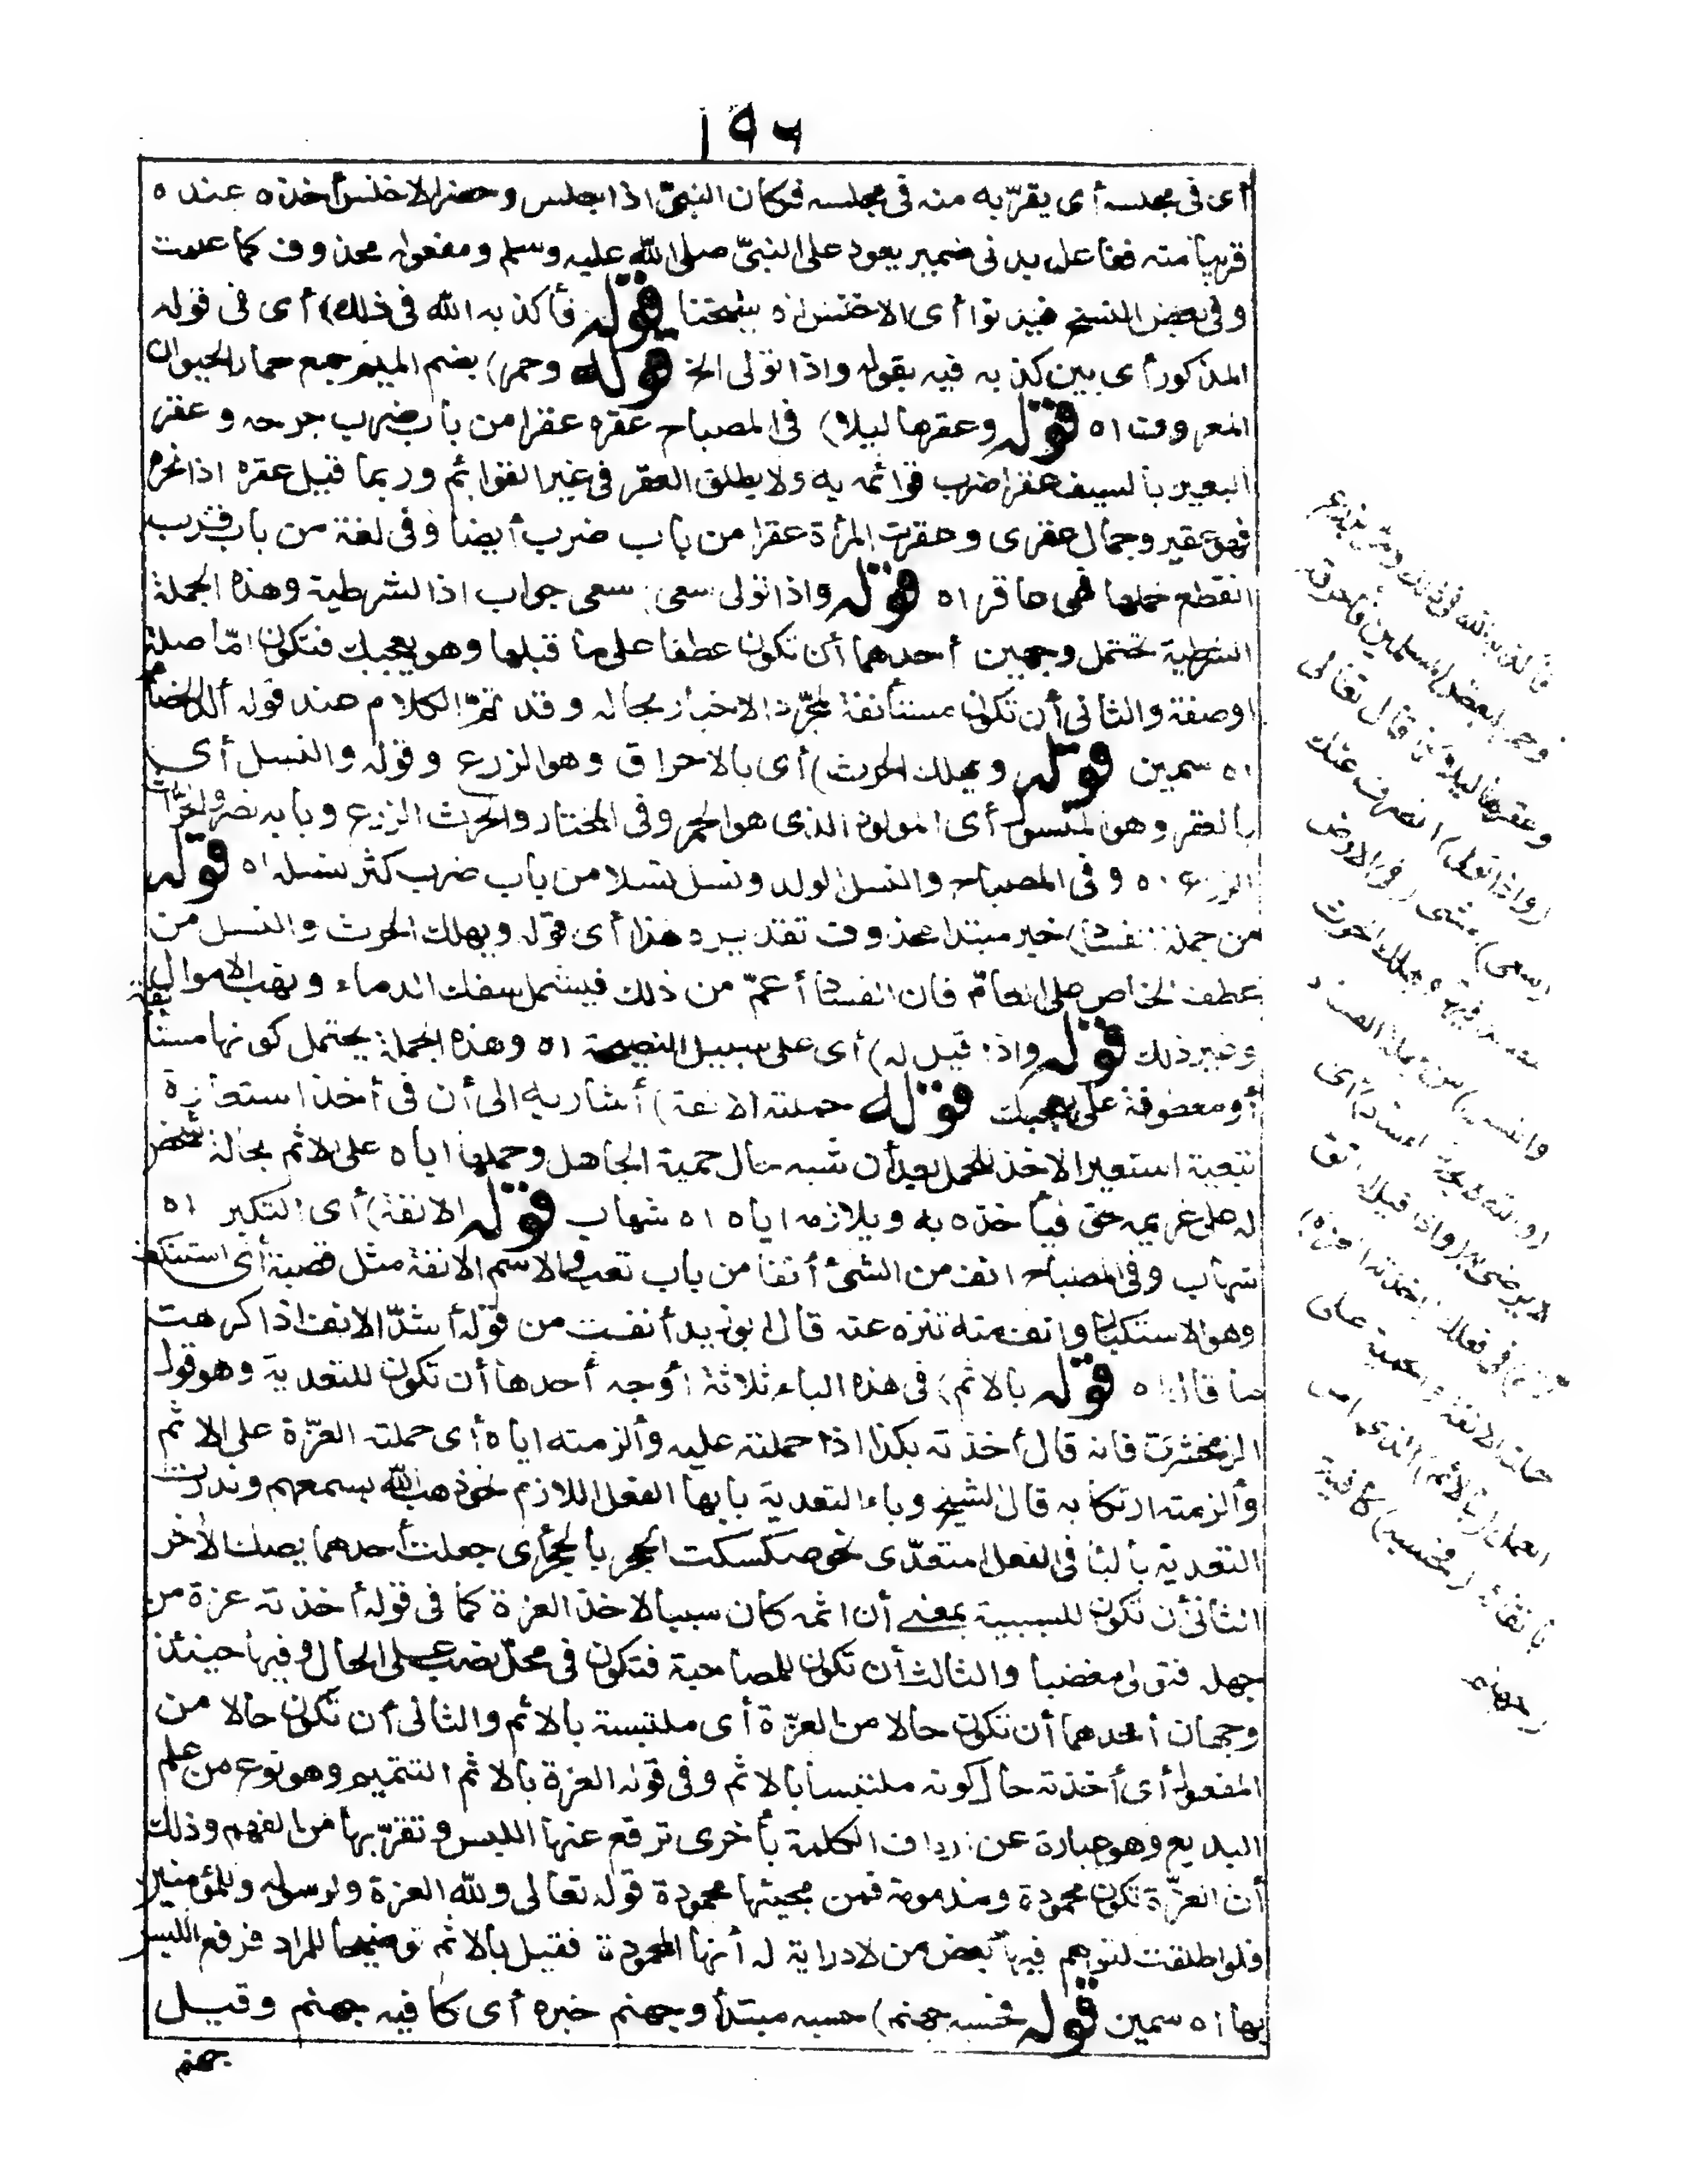 ١٩٦
أى فى مجلسه أى يقرّبه منه فى مجلسه فكان النبىّ اذا جلس وحضر الاخنس أخذه عنده
قريبا منه ففاعل يدنى ضمير يعود على النبىّ صلى الله عليه وسلم ومفعوله محذوف كما علمت
وفى بعض النسخ فيدنوا أى الاخنس اه شيخنا قوله فأكذبه الله فى ذلك) أى فى قوله
المذكور أى بين كذبه فيه بقوله واذا تولى الخ قوله وحمر) بضم الميم جمع حمار الحيوان
المعروف اه قوله وعقرها ليلا) فى المصباح عقره عقرا من باب ضرب جرحه وعقر
البعير بالسيف عقرا ضرب قوائمه به ولا يطلق العقر فى غير القوائم وربما قيل عقره اذا نحره
فهو عقير وجمال عقرى وعقرت المرأة عقرا من باب ضرب أيضا وفى لغة من باب قرب
انقطع حملها فهى عاقر اه قوله واذا تولى سعى) سعى جواب اذا الشرطية وهذه الجملة
الشرطية تحتمل وجهين أحدهما أن تكون عطفا على ما قبلها وهو يعجبك فتكون امّا صلة
اوصفة والثانى أن تكون مستأنفة لمجرّد الاخبار بحاله وقد تمّ الكلام عند قوله ألد الخصام
اه سمين قوله ويهلك الحرث) أى بالاحراق وهو الزرع وقوله والنسل أى
بالعقر وهو المنسول أى المولود الذى هو الحمر وفى المختار والحرث الزرع وبابه نصر والحرّاث
الزراع اه وفى المصباح والنسل الولد ونسل نسلا من باب ضرب كثر نسله اه قوله
من جملة الفساد) خبر مبتدا محذوف تقديره هذا أى قوله ويهلك الحرث والنسل من
عطف الخاص على العامّ فان الفساد أعمّ من ذلك فيشمل سفك الدماء ونهب الاموال
وغير ذلك قوله واذا قيل له) أى على سبيل النصيحة اه وهذه الجملة يحتمل كونها مستأنفة
أو معطوفة على يعجبك قوله حملته الانفة) أشار به الى أن فى أخذ استعارة
تبعية استعير الاخذ للحمل بعد أن شبه حال حمية الجاهل وحملها اياه على الاثم بحالة شخص
له على غريمه حق فيأخذه به ويلازمه اياه اه شهاب قوله الانفة) أى التكبر اه
شهاب وفى المصباح انف من الشئ أنفا من باب تعب والاسم الانفة مثل قصبة أى استنكف
وهو الاستكبار وانف منه تنزه عنه قال ابو زيد أنفت من قوله أشدّ الانف اذا كرهت
ما قال اه قوله بالاثم) فى هذه الباء ثلاثة أوجه أحدها أن تكون للتعدية وهو قول
الزمخشرى فانه قال أخذته بكذا اذا حملته عليه وألزمته اياه أى حملته العزّة على الاثم
وألزمته ارتكابه قال الشيخ وباء التعدية بابها الفعل اللازم نحو ذهب الله بسمعهم وندرت
التعدية بالباء فى الفعل المتعدّى نحو صككت الحجر بالحجر أى جعلت أحدهما يصك الآخر
الثانى أن تكون للسببية بمعنى أن اثمه كان سببا لاخذ العزة كما فى قوله أخذته عزة من
جهله فتولى مغضبا والثالث أن تكون للمصاحبة فتكون فى محل نصب على الحال وفيها حينئذ
وجهان أحدهما أن تكون حالا من العزّة أى ملتبسة بالاثم والثانى أن تكون حالا من
المفعول أى أخذته حال كونه ملتبسا بالاثم وفى قوله العزة بالاثم التتميم وهو نوع من علم
البديع وهو عبارة عن ارداف الكلمة بأخرى ترفع عنها اللبس وتقرّبها من الفهم وذلك
أن العزّة تكون محمودة ومذمومة فمن مجيئها محمودة قوله تعالى ولله العزة ولرسوله وللمؤمنين
فلو اطلقت لتوهم فيها بعض من لا دراية له أنها المحمودة فقيل بالاثم توضيحا للمراد فرفع اللبس
بها اه سمين قوله فحسبه جهنم) حسبه مبتدأ وجهنم خبره أى كافيه جهنم وقيل
جهنم
فأكذبه الله فى ذلك ومرّ بزرع
وحمر لبعض المسلمين فأحرقه
وعقرها ليلا كما قال تعالى
(واذا تولى) انصرف عنك
(سعى) مشى (فى الارض
ليفسد فيها ويهلك الحرث
والنسل) من جملة الفساد
(والله لا يحب الفساد) أى
لا يرضى به (واذا قيل له اتق
الله) فى فعلك (أخذته العزة)
حملته الانفة والحمية على
العمل (بالاثم) الذى أمر
باتقائه (فحسبه) كافيه
(جهنم